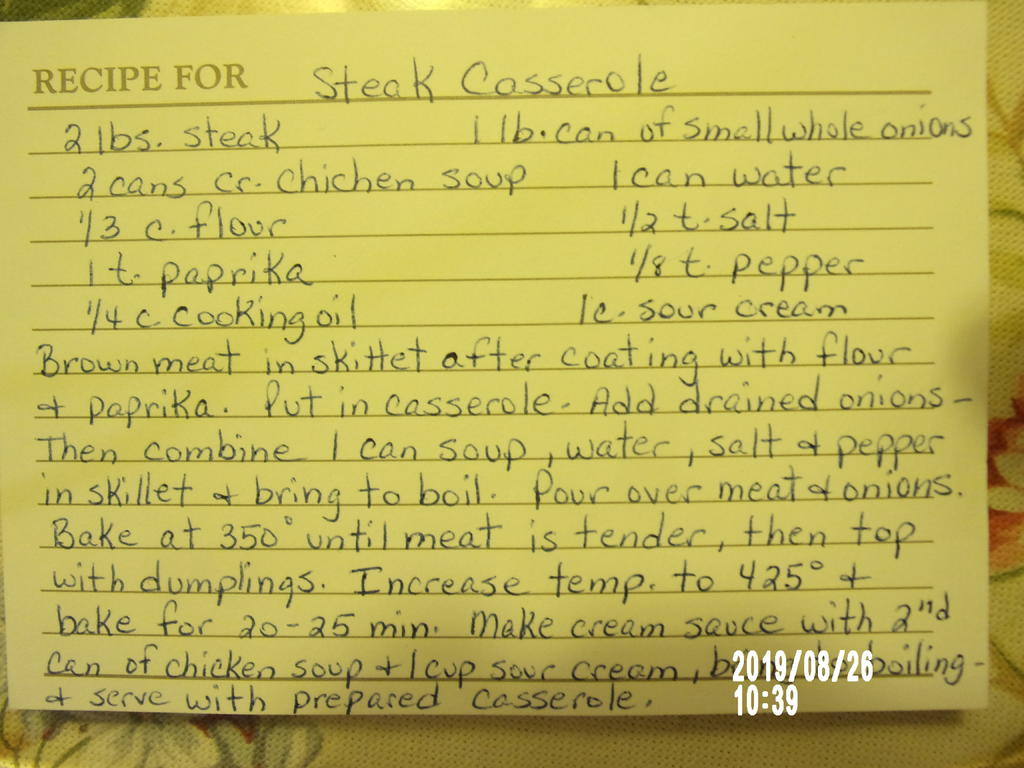 RECIPE FOR Steak Casserole
2 lbs. steak 1 lb. can of small whole onions
2 cans cr. Chichen soup 1 can water
1/3 c. flour 1/2 t. salt
1 t. paprika 1/8 t. pepper
1/4 c cooking oil 1c. sour cream
Brown meat in skittet after coating with flour
& paprika. Put in casserole. Add drained onions -
Then combine 1 can soup, water, salt & pepper
in skillet & bring to boil. Pour over meat & onions.
Bake at 350° until meat is tender, then top
with dumplings. Increase temp. to 425° &
bake for 20-25 min. Make cream sauce with 2nd
can of chicken soup & 1 cup sour cream, boiling -
& serve with prepared casserole.
2019/08/26
10:39